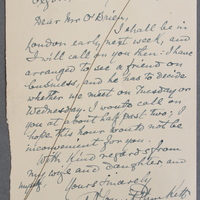 Dear Mr O'Brien,
I shall be in
London early next week, and
I will call on you then. I have
arranged to see a friend on
business, and he has to decide
whether we meet on Tuesday or
Wednesday. I would call on
you at about half past two; I
hope this hour would not be
inconvenient for you.
With kind regards from
my wife and daughter and
myself,
Yours sincerely